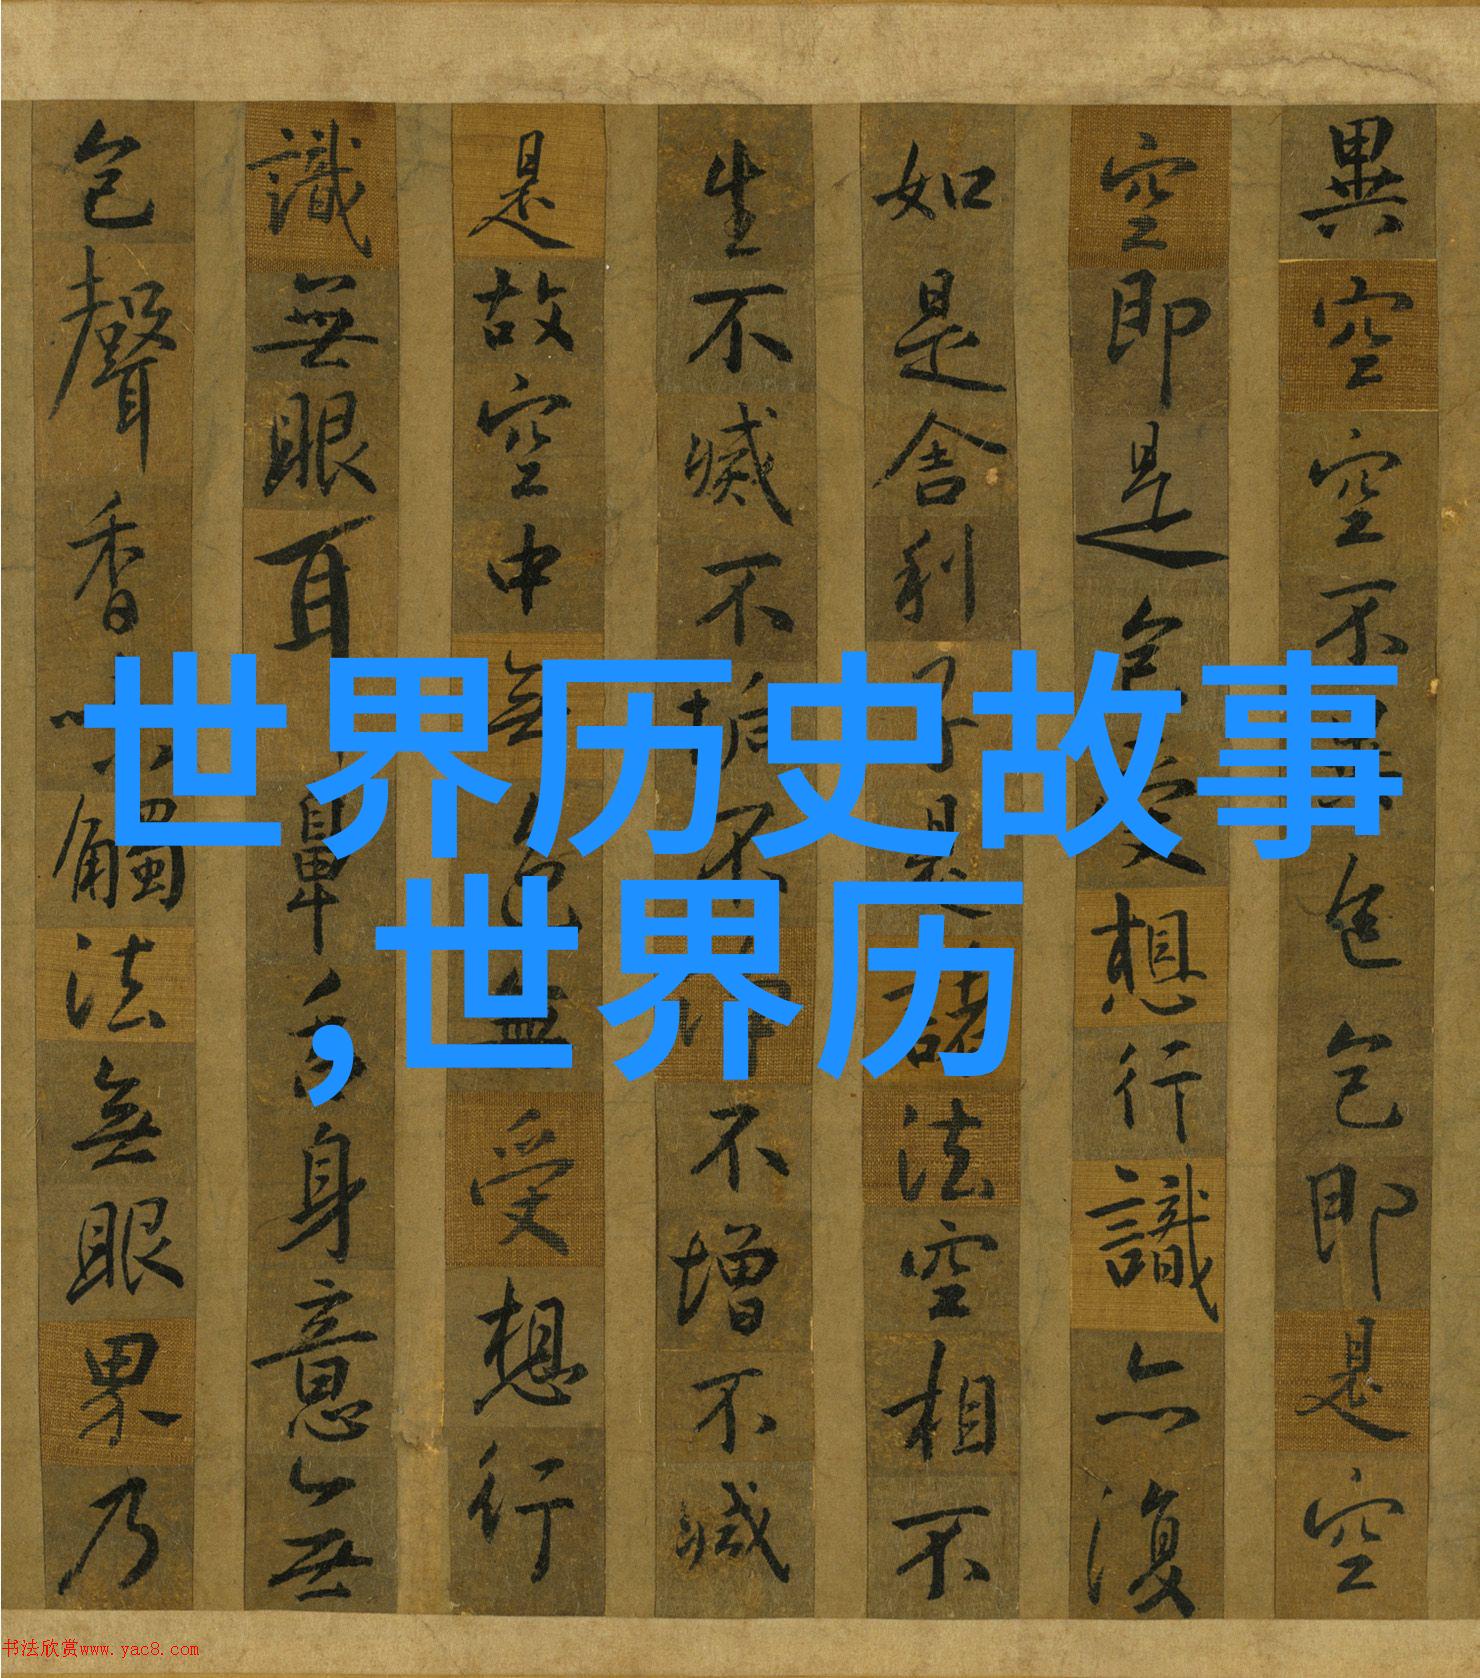 異空空不異色色即是空
空即是色受想行識亦復
如是舍利子是諸法空相不
生不滅不垢不淨不增不減
是故空中無色無受想行
識無眼耳鼻舌身意無
色聲香味觸法無眼界乃
世界历史故事
,世界历
书法欣赏www.yac8.com